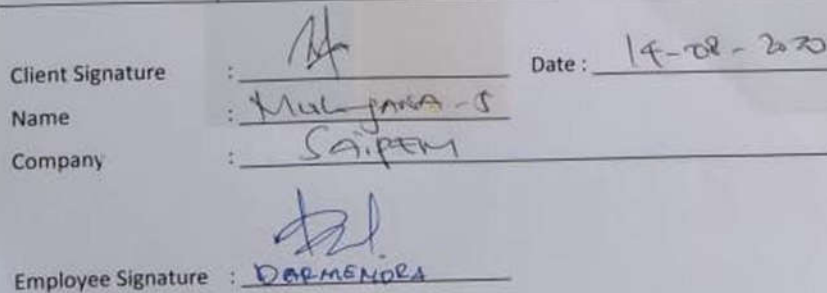 Client Signature : Date : 14-08-2020
Name : Mulyana - S
Company : SAIPEM
Employee Signature : DARMENDRA